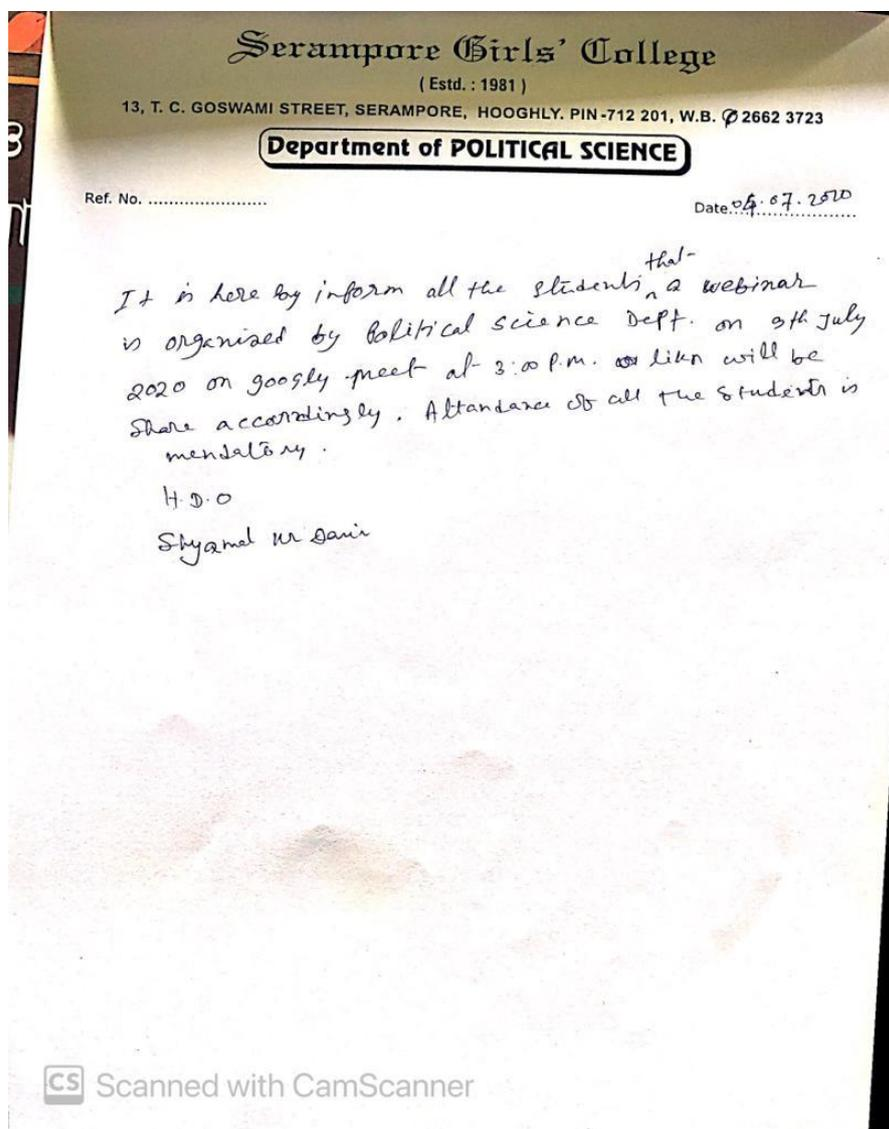 Serampore Girls' College
( Estd. : 1981 )
13, T. C. GOSWAMI STREET, SERAMPORE, HOOGHLY. PIN-712 201, W.B. ✆ 2662 3723
Department of POLITICAL SCIENCE
Ref. No. ........................
Date 04.07.2020
It is here by inform all the students that a webinar
is organised by Political science Dept. on 9th July
2020 on googly meet at 3:00 P.m. likn will be
Share accordingly. Attandance of all the students is
mendatory.
H.D.O
Shyamal kr
CS Scanned with CamScanner